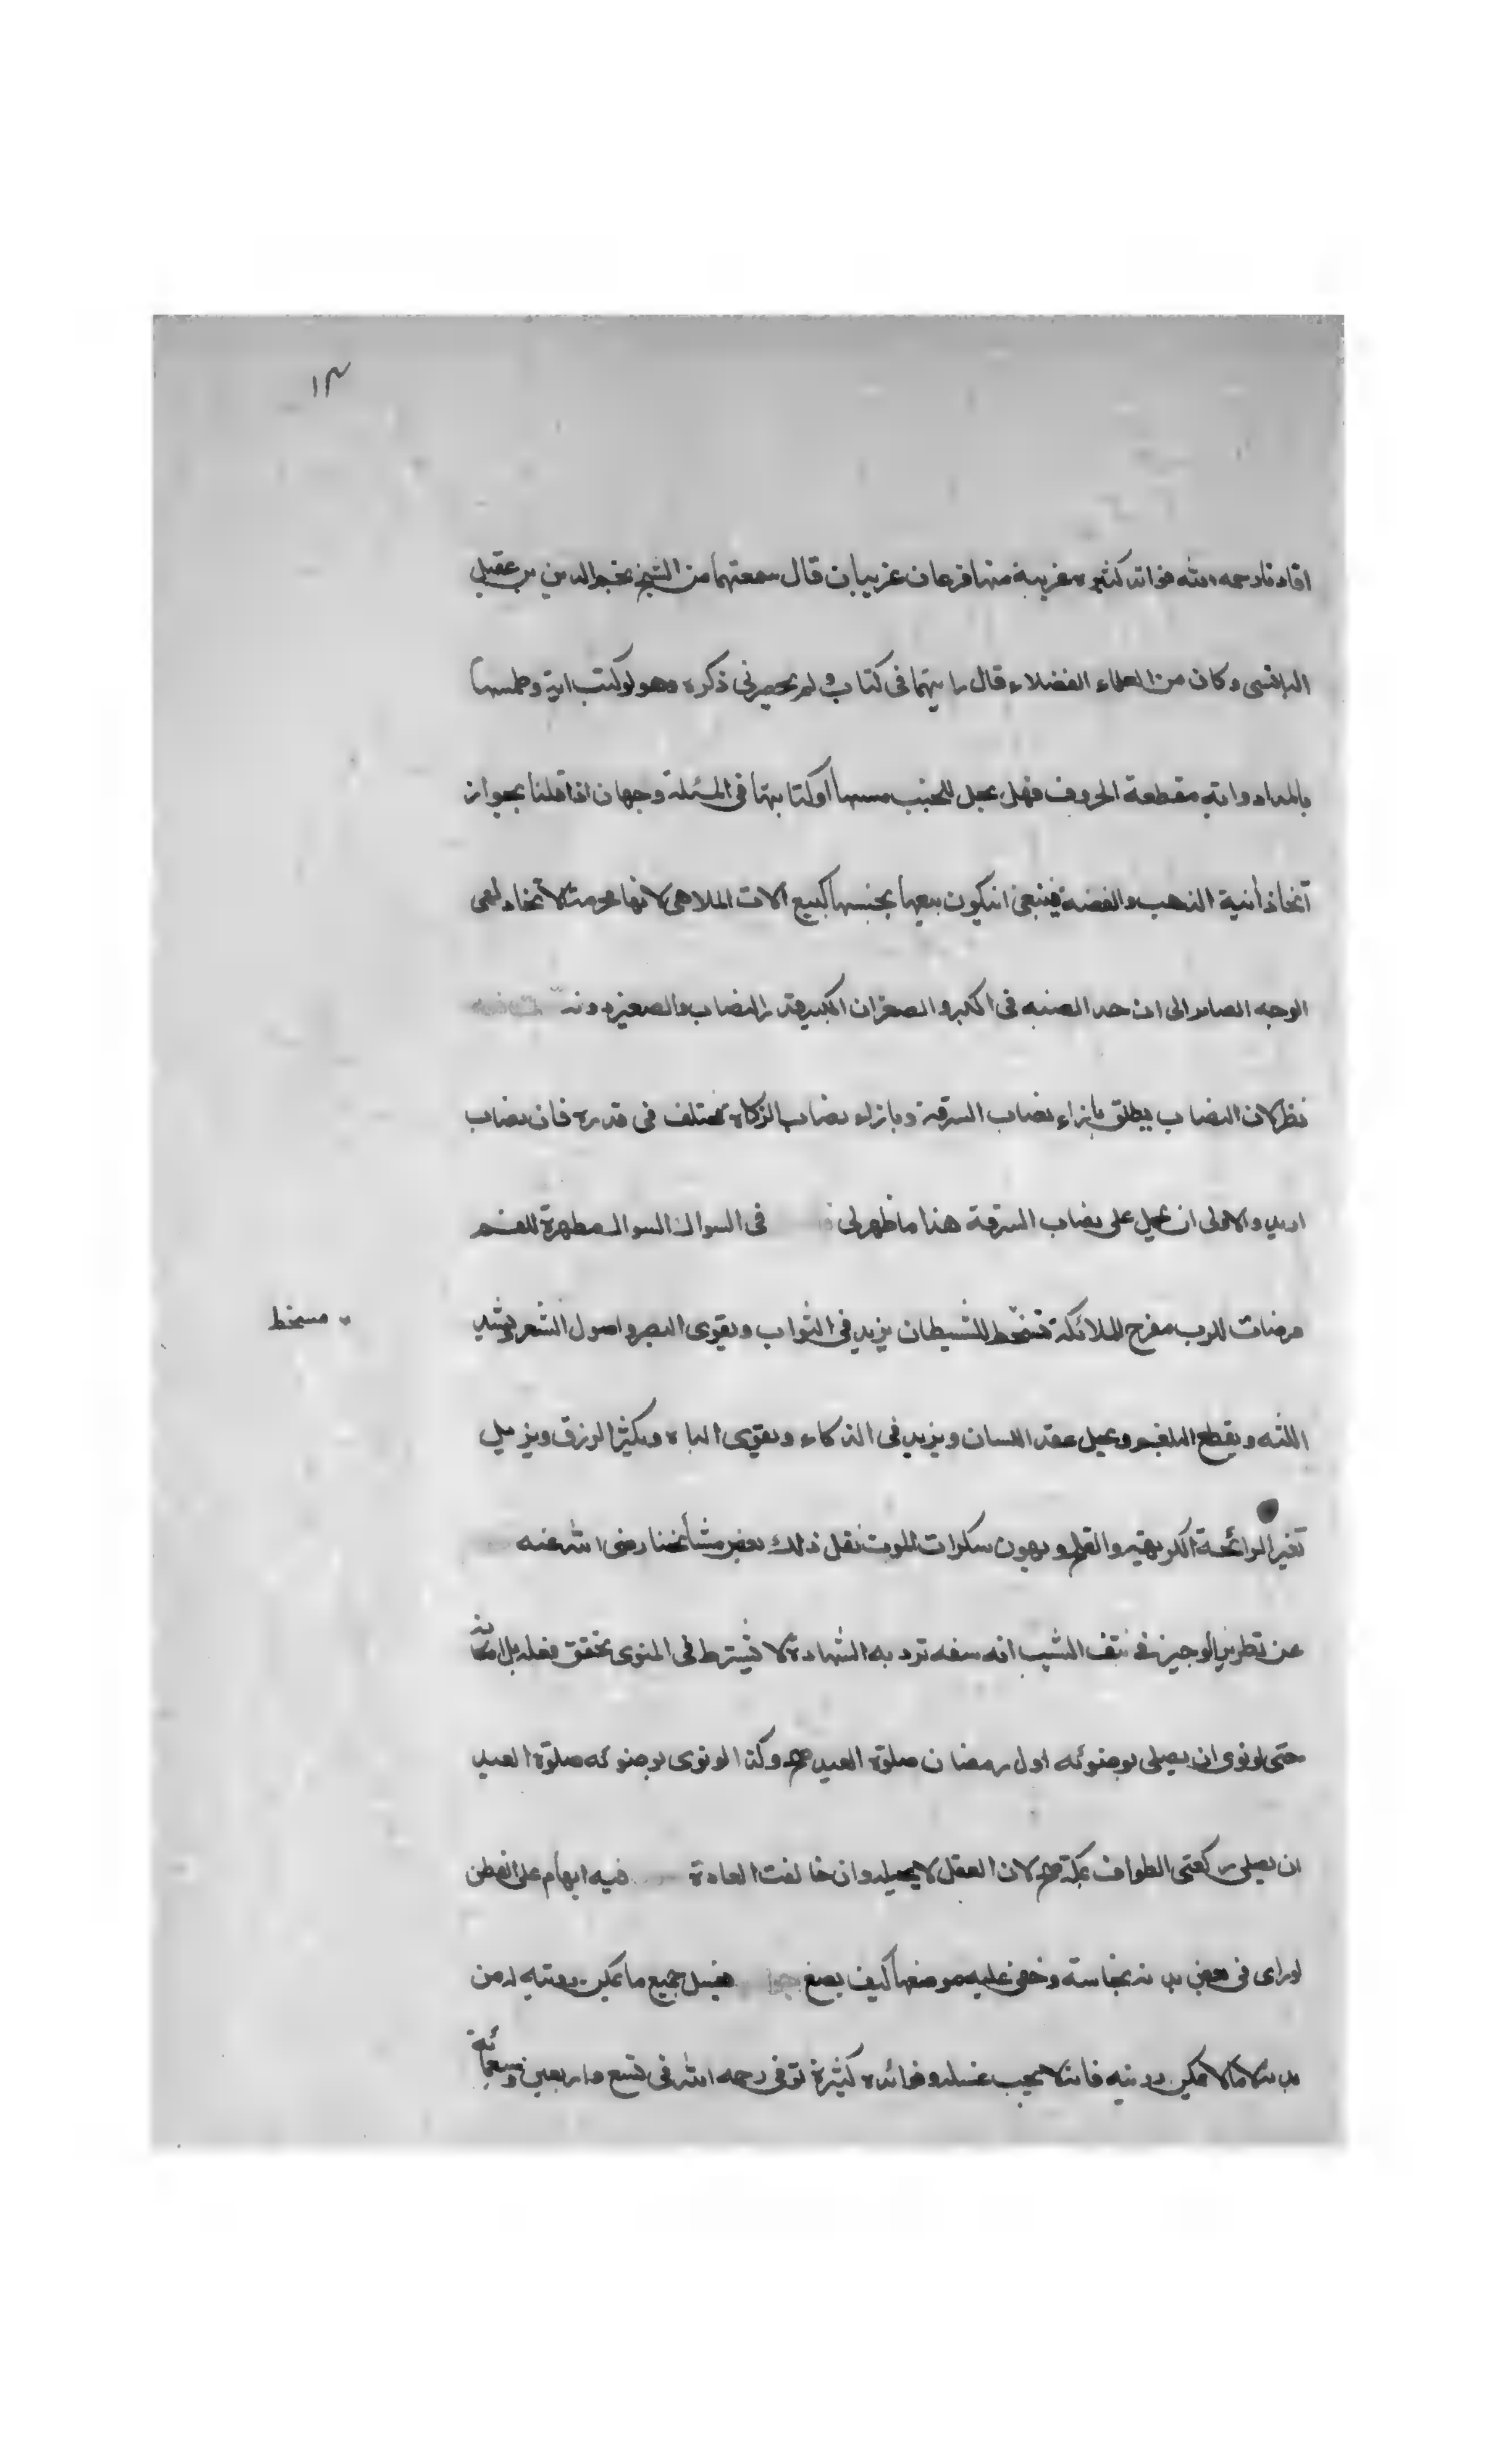 ١٣
افادنا رحمه الله فوائد كثيرة غريبة منها فرعان غريبان قال سمعتهما من الشيخ نجم الدين بن عقيل
البالسى وكان من العلماء الفضلاء قال رايتهما فى كتاب ولم يحضرنى ذكره وهو لو كتب اية وطمسها
بالمداد واية مقطعة الحروف فهل يحل للجنب مسها او كتابتها فى المسئلة وجهان اذا قلنا بجواز
اتخاذ أنية الذهب والفضة فينبغى انيكون بيعها بجنسها كبيع الات الملاهى لانها محرمة الاتخاذ
الوجه الصاير الى ان حد الضبه فى الكبر والصغر ان الكبير قدر النصاب والصغير دونه
نظر لان النصاب يطلق بازاء نصاب السرقة وبازاء نصاب الزكاة مختلف فى قدره فان نصاب
اريد والاولى ان يحمل على نصاب السرقة هذا ما ظهر لى فى السواك السواك مطهرة للفم
مرضات للرب مفرح للملائكة للشيطان يزيد فى الثواب ويقوى البصر واصول الشعر ويشد
مسخط
اللثه ويقطع البلغم ويحل عقد اللسان ويزيد فى الذكاء ويقوى الباه ويكثر الرزق ويزيل
تغير الرائحة الكريهة والقلح ويهون سكرات الموت نقل ذلك بعض مشائخنا رضى الله عنه
عن تطريز الوجيز فى نتف الشيب انه سفه ترد به الشهادة لا يشترط فى المنوى تحقق فعله بل امكانه
حتى لو نوى ان يصلى بوضوئه اول رمضان صلوة العيد صح وكذا لو نوى بوضوئه صلوة العيد
ان يصلى ركعتى الطواف بمكة صح لان العقل لا يحيله وان خالفت العادة فيه ابهام على الفطن
لو راى فى بعض بدنه نجاسة وخفى عليه موضعها كيف يصنع يغسل جميع ما يمكن رويته له من
بدنه لا ما لا يمكن رويته فانه لا يجب غسله وفوائده كثيرة توفى رحمه الله فى تسع واربعين وسبعمائة